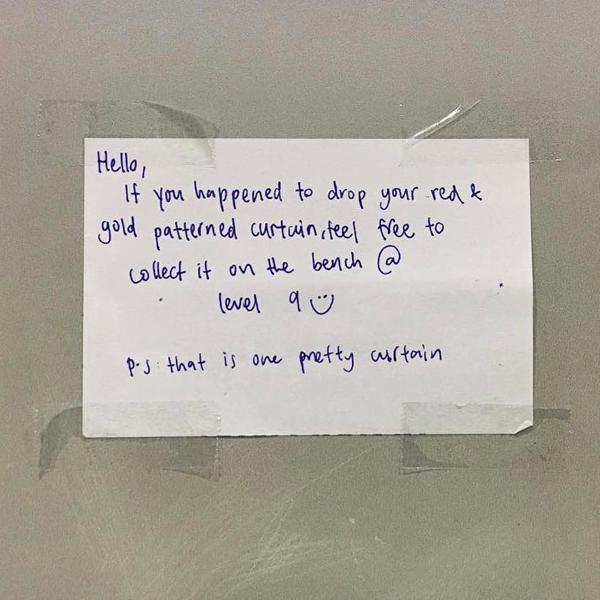 Hello,
If you happened to drop your red &
gold patterned curtain, feel free to
collect it on the bench @
level 9 :)
p.s: that is one pretty curtain